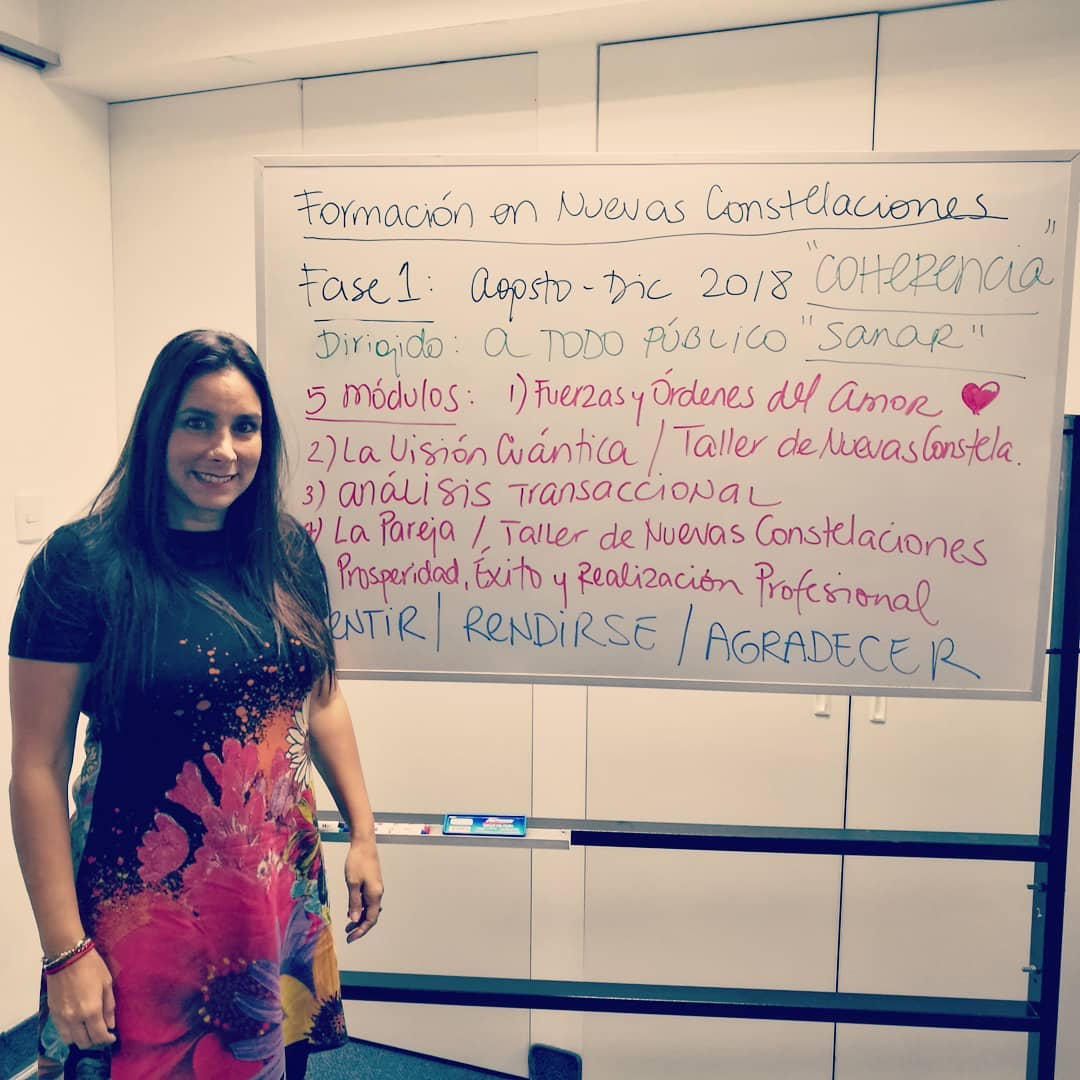 Formación en Nuevas Constelaciones
Fase 1: Agosto-Dic 2018 "COHERENCIA"
Dirigido: a TODO PÚBLICO "SANAR"
5 módulos: 1) Fuerzas y Órdenes del Amor
2) La Visión Cuántica / Taller de Nuevas Constela.
3) Análisis Transaccional
4) La Pareja / Taller de Nuevas Constelaciones
Prosperidad, Éxito y Realización Profesional
ENTIR / RENDIRSE / AGRADECER